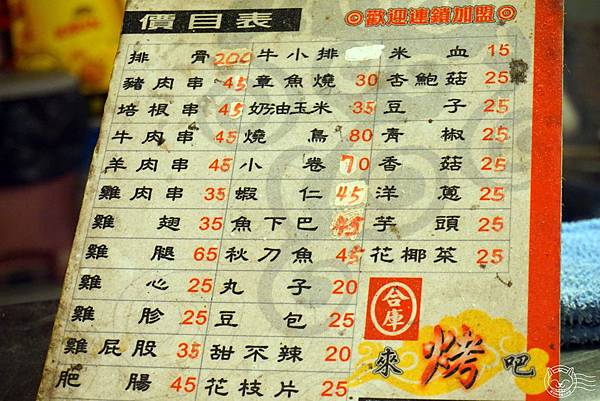 價目表 ◎歡迎連鎖加盟◎
排骨 200 牛小排 米血 15
豬肉串 45 章魚燒 30 杏鮑菇 25
培根串 45 奶油玉米 35 豆子 25
牛肉串 45 燒鳥 80 青椒 25
羊肉串 45 小卷 70 香菇 25
雞肉串 35 蝦仁 45 洋蔥 25
雞翅 35 魚下巴 45 芋頭 25
雞腿 65 秋刀魚 45 花椰菜 25
雞心 25 丸子 20
雞胗 25 豆包 25
雞屁股 35 甜不辣 20
肥腸 45 花枝片 25
合庫
來烤吧